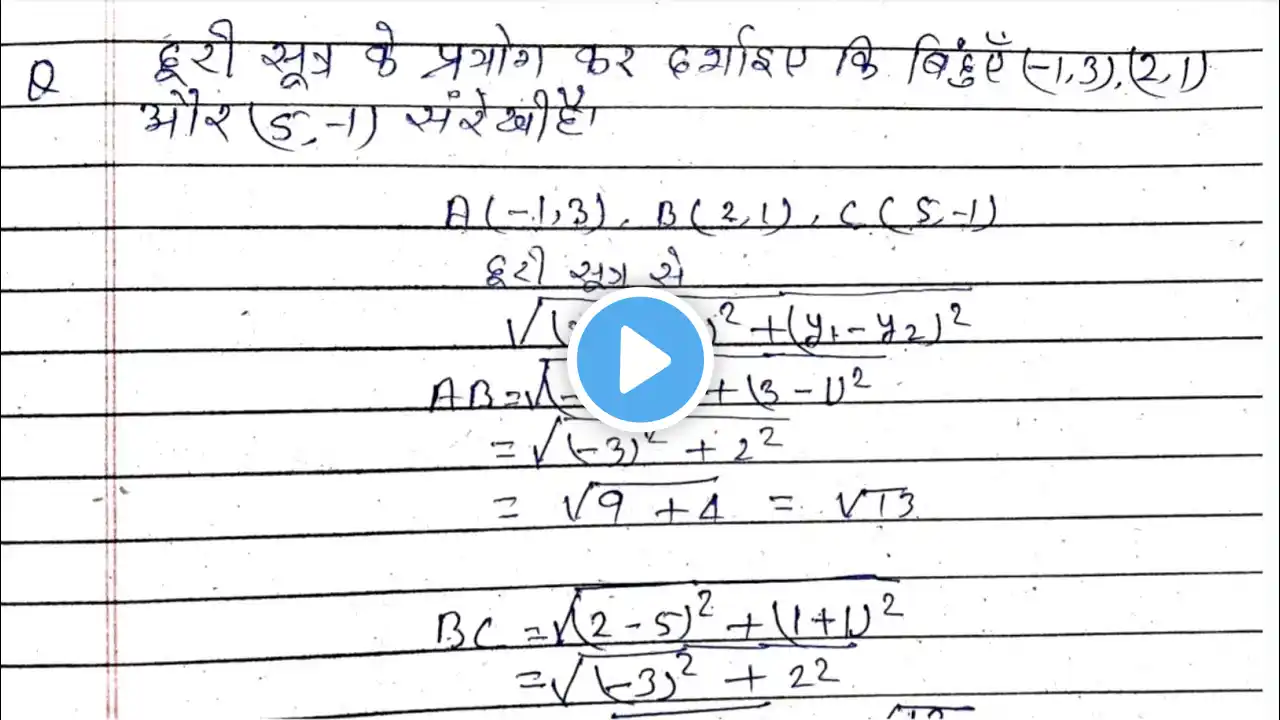 Q दूरी सूत्र के प्रयोग कर दर्शाइए कि बिंदुएँ (-1,3),(2,1)
और (5,-1) संरेखी है।
A(-1,3), B(2,1), C(5,-1)
दूरी सूत्र से
)² + (y₁ - y₂)²
AB = √(- + (3 - 1)²
= √(-3)² + 2²
= √9 + 4 = √13
BC = √(2 - 5)² + (1 + 1)²
= √(-3)² + 22